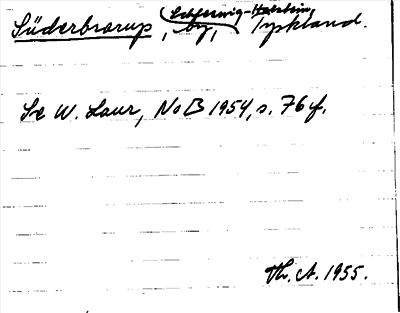 Süderbrarup, by, Schleswig-Holstein, Tyskland.
Se W. Laur, NoB 1954, s. 76 f.
Th. A. 1955.